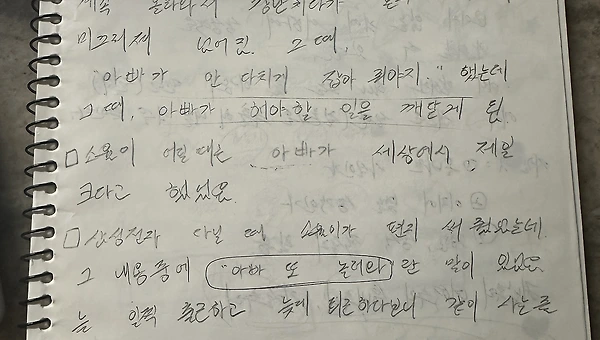 계속 올라와서 장난치다가
미끄러져 넘어짐. 그 때,
"아빠가 안 다치게 잡아 줘야지." 했는데
그 때, 아빠가 해야할 일을 깨닫게 됨
□ 소율이 어릴 때는 아빠가 세상에서 제일
크다고 했었음.
□ 삼성전자 다닐 때 소율이가 편지 써 줬었는데.
그 내용 중에 "아빠 또 놀러와" 란 말이 있었음.
늘 일찍 출근하고 늦게 퇴근하다보니 같이 사는 줄